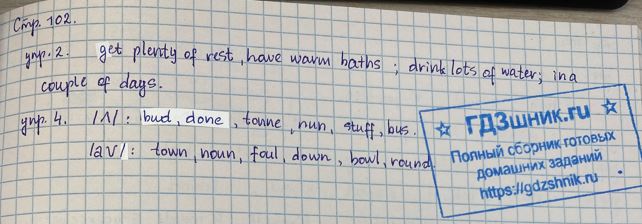 Стр. 102.
упр. 2. get plenty of rest, have warm baths; drink lots of water; in a
couple of days.
упр. 4. /ʌ/: bud, done, tonne, nun, stuff, bus.
/aʊ/: town, noun, foul, down, bowl, round
ГДЗшник.ru
Полный сборник готовых
домашних заданий
https://gdzshnik.ru